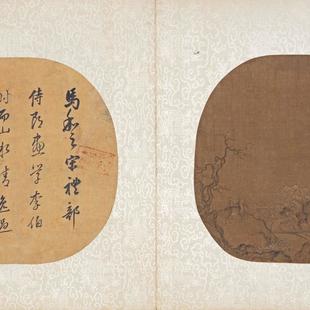 馬和之宋禮部
侍郎畫學李伯
時而山水清逸